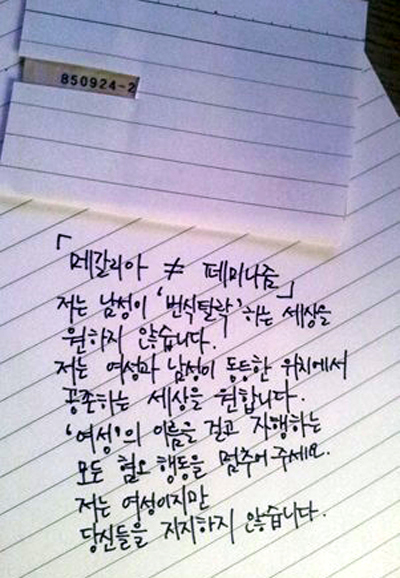 850924-2
「메갈리아 ≠ 페미니즘」
저는 남성이 '번식탈락' 하는 세상을
원하지 않습니다.
저는 여성과 남성이 동등한 위치에서
공존하는 세상을 원합니다.
'여성'의 이름을 걸고 자행하는
모든 혐오 행동을 멈추어 주세요.
저는 여성이지만
당신들을 지지하지 않습니다.